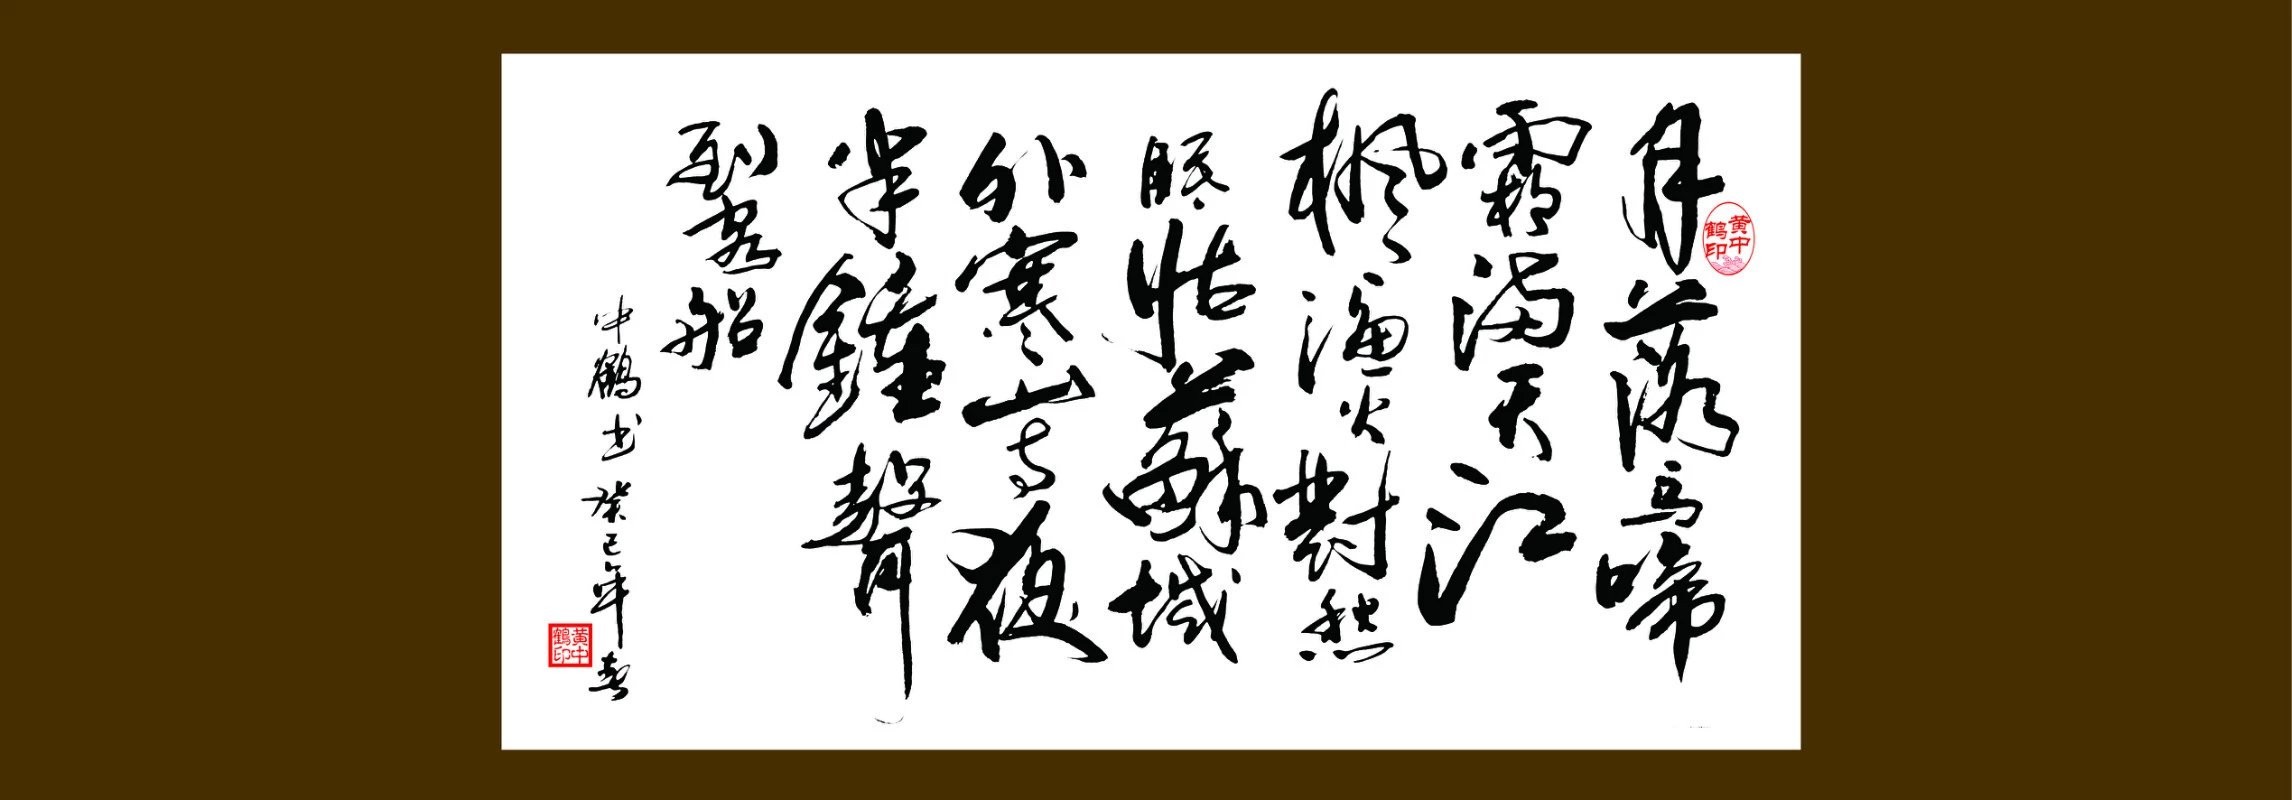 月落烏啼
霜滿天江
枫漁火對愁
眠姑蘇城
外寒山寺夜
半鐘聲
到客船
中鶴书
癸巳年春
黄中鶴印
黄中鶴印